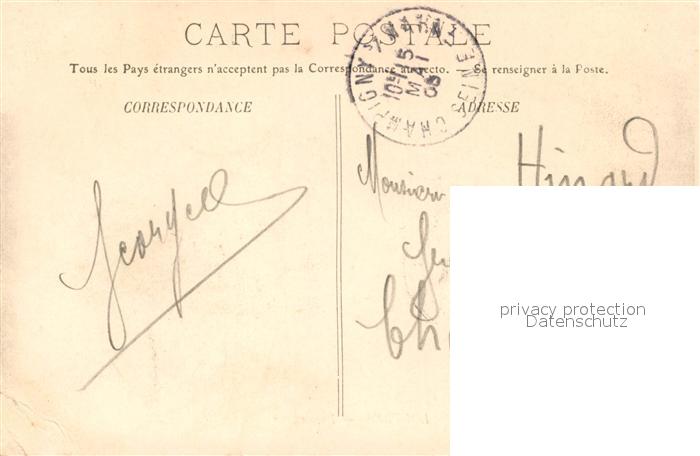 CARTE POSTALE
Tous les Pays étrangers n'acceptent pas la Correspondance au recto. Se renseigner à la Poste.
CORRESPONDANCE
ADRESSE
CHAMPIGNY S/ MARNE
SEINE
15
MAI
05
Monsieur
privacy protection
Datenschutz